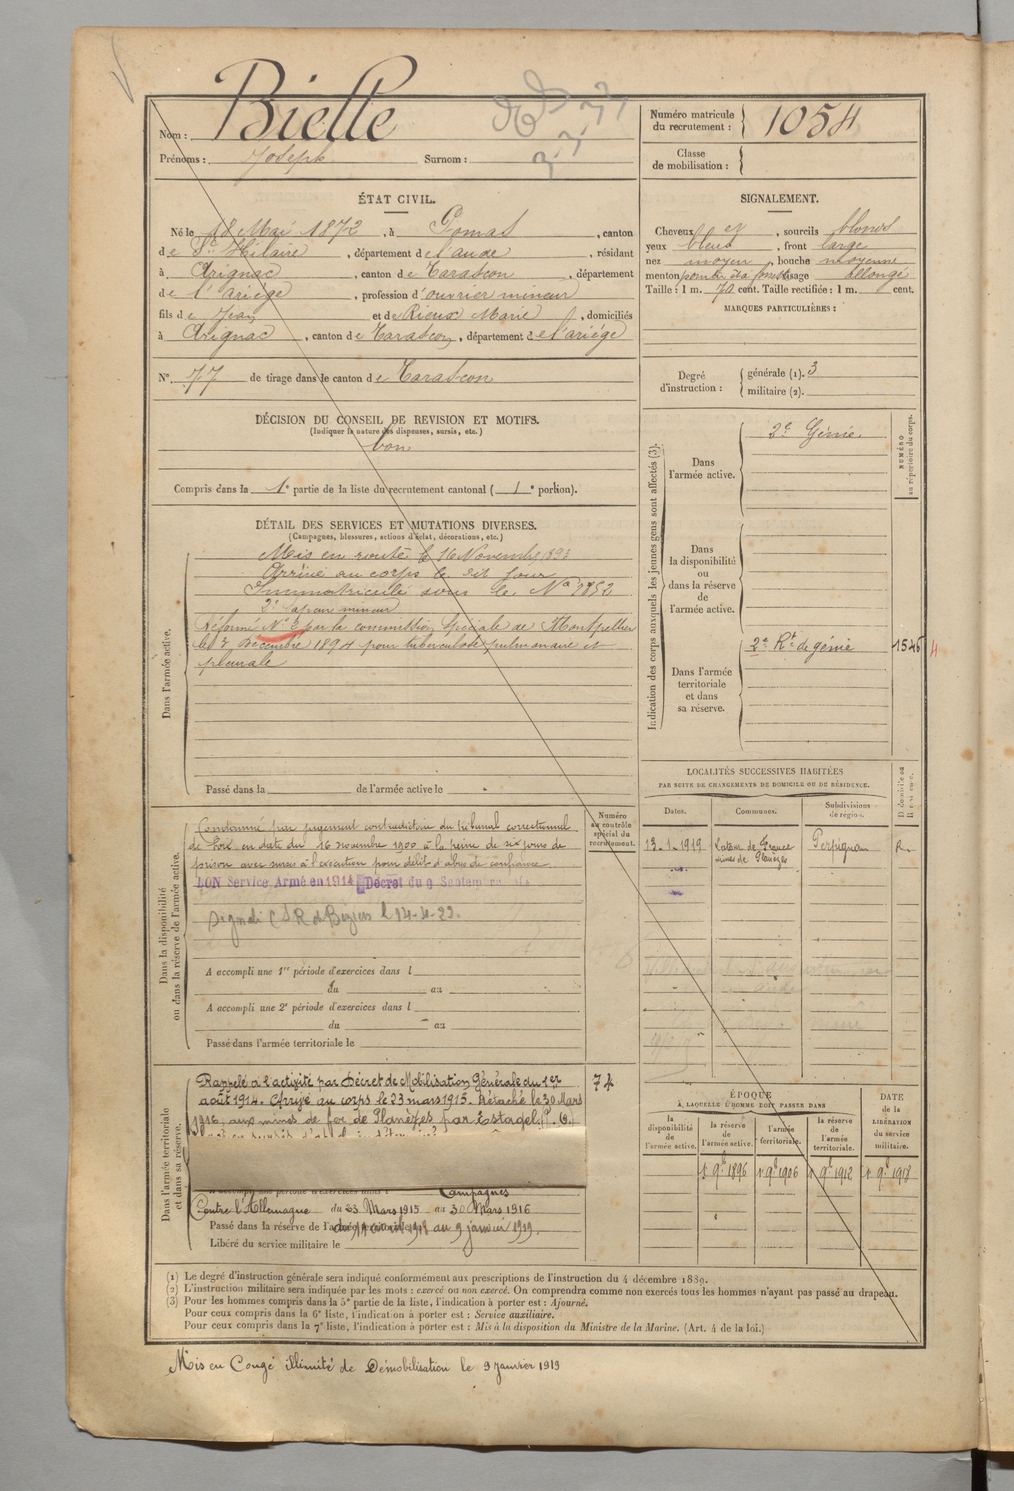 Nom : Bielle
Prénoms : Joseph Surnom :
Numéro matricule du recrutement : 1054
Classe de mobilisation :
ÉTAT CIVIL.
Né le 18 Mai 1872, à Pomas, canton
de St Hilaire, département de l'aude, résidant
à Arignac, canton de Tarascon, département
de l'ariège, profession d'ouvrier mineur
fils de Jean et de Rieux Marie, domiciliés
à Arignac, canton de Tarascon, département de l'ariège
N° 77 de tirage dans le canton de Tarascon
SIGNALEMENT.
Cheveux et, sourcils blonds
yeux bleus, front large
nez moyen, bouche moyenne
menton visage allongé
Taille : 1 m. 70 cent. Taille rectifiée : 1 m. cent.
MARQUES PARTICULIÈRES :
Degré d'instruction : générale (1). 3
militaire (2).
DÉCISION DU CONSEIL DE REVISION ET MOTIFS.
(Indiquer la nature des dispenses, sursis, etc.)
bon
Compris dans la 1e partie de la liste du recrutement cantonal (1e portion).
DÉTAIL DES SERVICES ET MUTATIONS DIVERSES.
(Campagnes, blessures, actions d'éclat, décorations, etc.)
Dans l'armée active.
Mis en route le 16 Novembre 1893
Arrivé au corps le dit jour
Immatriculé sous le No 2852
2e Sapeur mineur
Réformé N° 2 par la commission spéciale de Montpellier
le Décembre 1894 pour tuberculose pulmonaire et
pleurale
Passé dans la de l'armée active le
Indication des corps auxquels les jeunes gens sont affectés (3).
NUMÉRO au répertoire du corps.
Dans l'armée active.
2e Génie.
Dans la disponibilité ou dans la réserve de l'armée active.
Dans l'armée territoriale et dans sa réserve.
2e Rt de génie 1546 4
LOCALITÉS SUCCESSIVES HABITÉES
PAR SUITE DE CHANGEMENTS DE DOMICILE OU DE RÉSIDENCE.
Dates. Communes. Subdivisions de région.
13-1-1919 Latour de France mines de Planèzes Perpignan R.
Dans la disponibilité ou dans la réserve de l'armée active.
Numéro au contrôle spécial du recrutement.
Condamné par jugement contradictoire du tribunal correctionnel
de Foix en date du 16 novembre 1900 à la peine de six jours de
prison avec sursis à l'exécution pour délit d'abus de confiance.
BON Service Armé en 1914 Décret du 9 Septembre
C S R de Béziers l 14-4-23.
A accompli une 1re période d'exercices dans l
du au
A accompli une 2e période d'exercices dans l
du au
Passé dans l'armée territoriale le
Dans l'armée territoriale et dans sa réserve.
Rappelé à l'activité par Décret de Mobilisation Générale du 1er
août 1914. Arrivé au corps le 23 mars 1915. Détaché le 30 Mars
1916, aux mines de fer de Planèzes par Estagel
74
Campagnes
Contre l'Allemagne du 23 Mars 1915 au 30 Mars 1916
Passé dans la réserve de l'armée territoriale au 9 janvier 1919.
Libéré du service militaire le
ÉPOQUE
A LAQUELLE L'HOMME DOIT PASSER DANS
la disponibilité de l'armée active.
la réserve de l'armée active.
l'armée territoriale.
la réserve de l'armée territoriale.
DATE de la LIBÉRATION du service militaire.
1 9b 1896 1 9b 1906 1 9b 1912 1 9b 1918
(1) Le degré d'instruction générale sera indiqué conformément aux prescriptions de l'instruction du 4 décembre 1889.
(2) L'instruction militaire sera indiquée par les mots : exercé ou non exercé. On comprendra comme non exercés tous les hommes n'ayant pas passé au drapeau.
(3) Pour les hommes compris dans la 5e partie de la liste, l'indication à porter est : Ajourné.
Pour ceux compris dans la 6e liste, l'indication à porter est : Service auxiliaire.
Pour ceux compris dans la 7e liste, l'indication à porter est : Mis à la disposition du Ministre de la Marine. (Art. 4 de la loi.)
Mis en Congé illimité de Démobilisation le 9 Janvier 1919